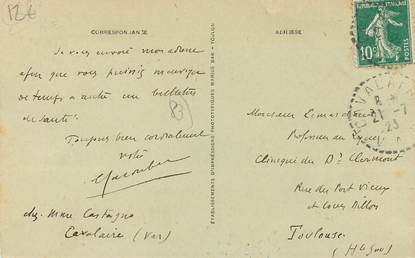 12€
CORRESPONDANCE
ADRESSE
Je vous envoie mon adresse
afin que vous puissiez m'envoyer
de temps à autre un bulletin
de santé.
Toujours bien cordialement
votre
83
chez Mme Castagno
Cavalaire (Var)
ÉTABLISSEMENTS D'IMPRESSIONS PHOTOTYPIQUES MARIUS BAR - TOULON
10c
CAVALAIRE
21 -7
23
VAR
Monsieur
Professeur au Lycée
Clinique du Dr Clermont
Rue du Port Vieux
et Cours Dillon
Toulouse
(Hte Gne)